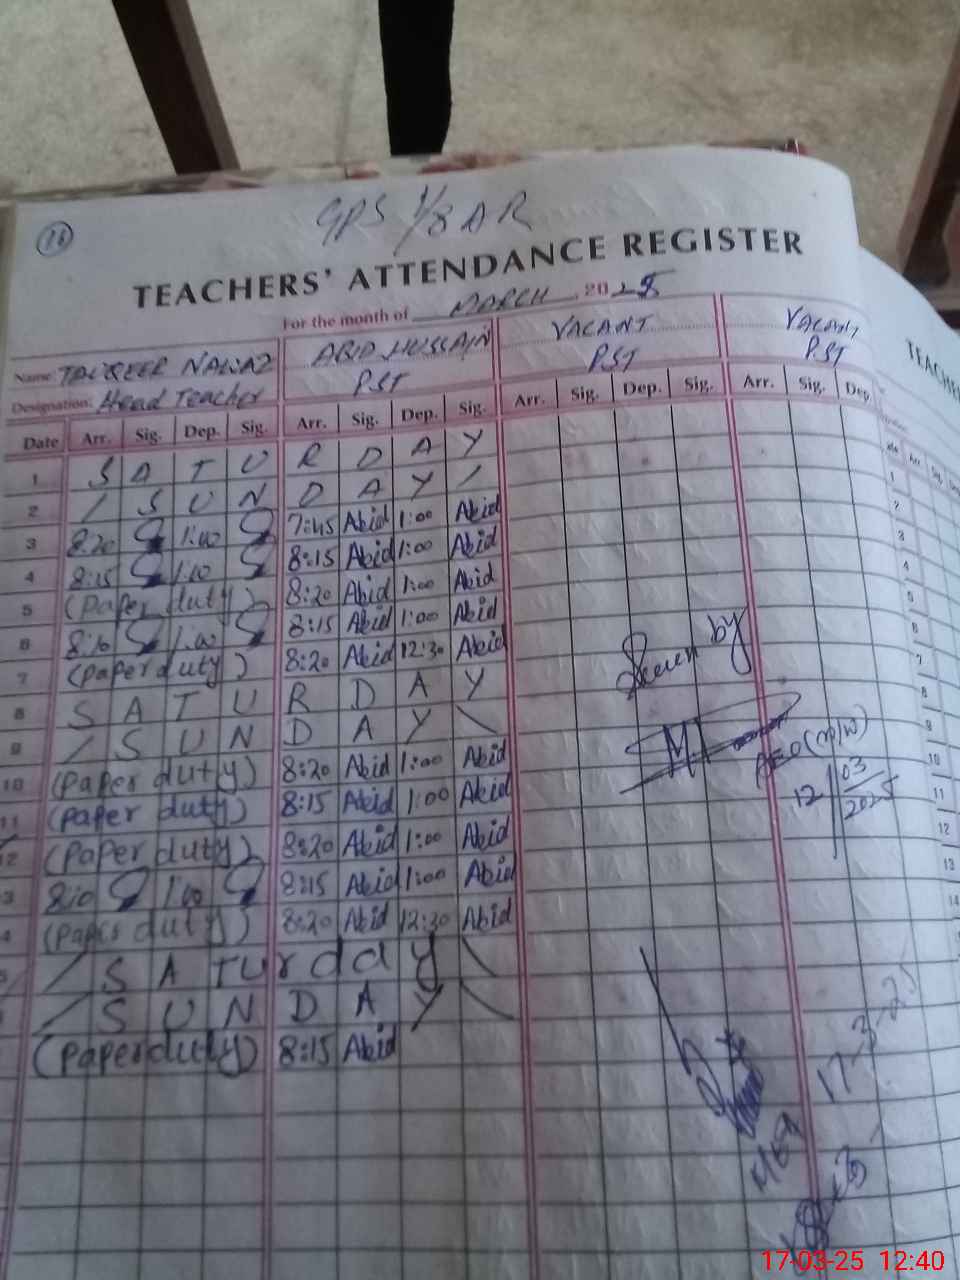 16
GPS 1/8 AR
TEACHERS' ATTENDANCE REGISTER
For the month of MARCH 2025
Name TAUQEER NAWAZ ABID HUSSAIN VACANT VACANT
Designation: Head Teacher PST PST PST
Date Arr. Sig. Dep. Sig. Arr. Sig. Dep. Sig. Arr. Sig. Dep. Sig. Arr. Sig. Dep.
1 S A T U R D A Y
2 / S U N D A Y /
3 8:20 1:00 7:45 Abid 1:00 Abid
4 8:15 1:00 8:15 Abid 1:00 Abid
5 (Paper duty) 8:20 Abid 1:00 Abid
6 8:10 1:00 8:15 Abid 1:00 Abid
7 (paper duty) 8:20 Abid 12:30 Abid
8 S A T U R D A Y
9 / S U N D A Y \
10 (Paper duty) 8:20 Abid 1:00 Abid
11 (Paper duty) 8:15 Abid 1:00 Abid
12 (Paper duty) 8:20 Abid 1:00 Abid
3 8:10 1:00 8:15 Abid 1:00 Abid
4 (Paper duty) 8:20 Abid 12:30 Abid
/ S A T U r d a y \
/ S U N D A Y \
(Paper duty) 8:15 Abid
by
12/03/2025
MEA 17-3-25
TEACHE
Arr.
1
2
3
4
5
6
7
8
9
10
11
12
13
14
17-03-25 12:40